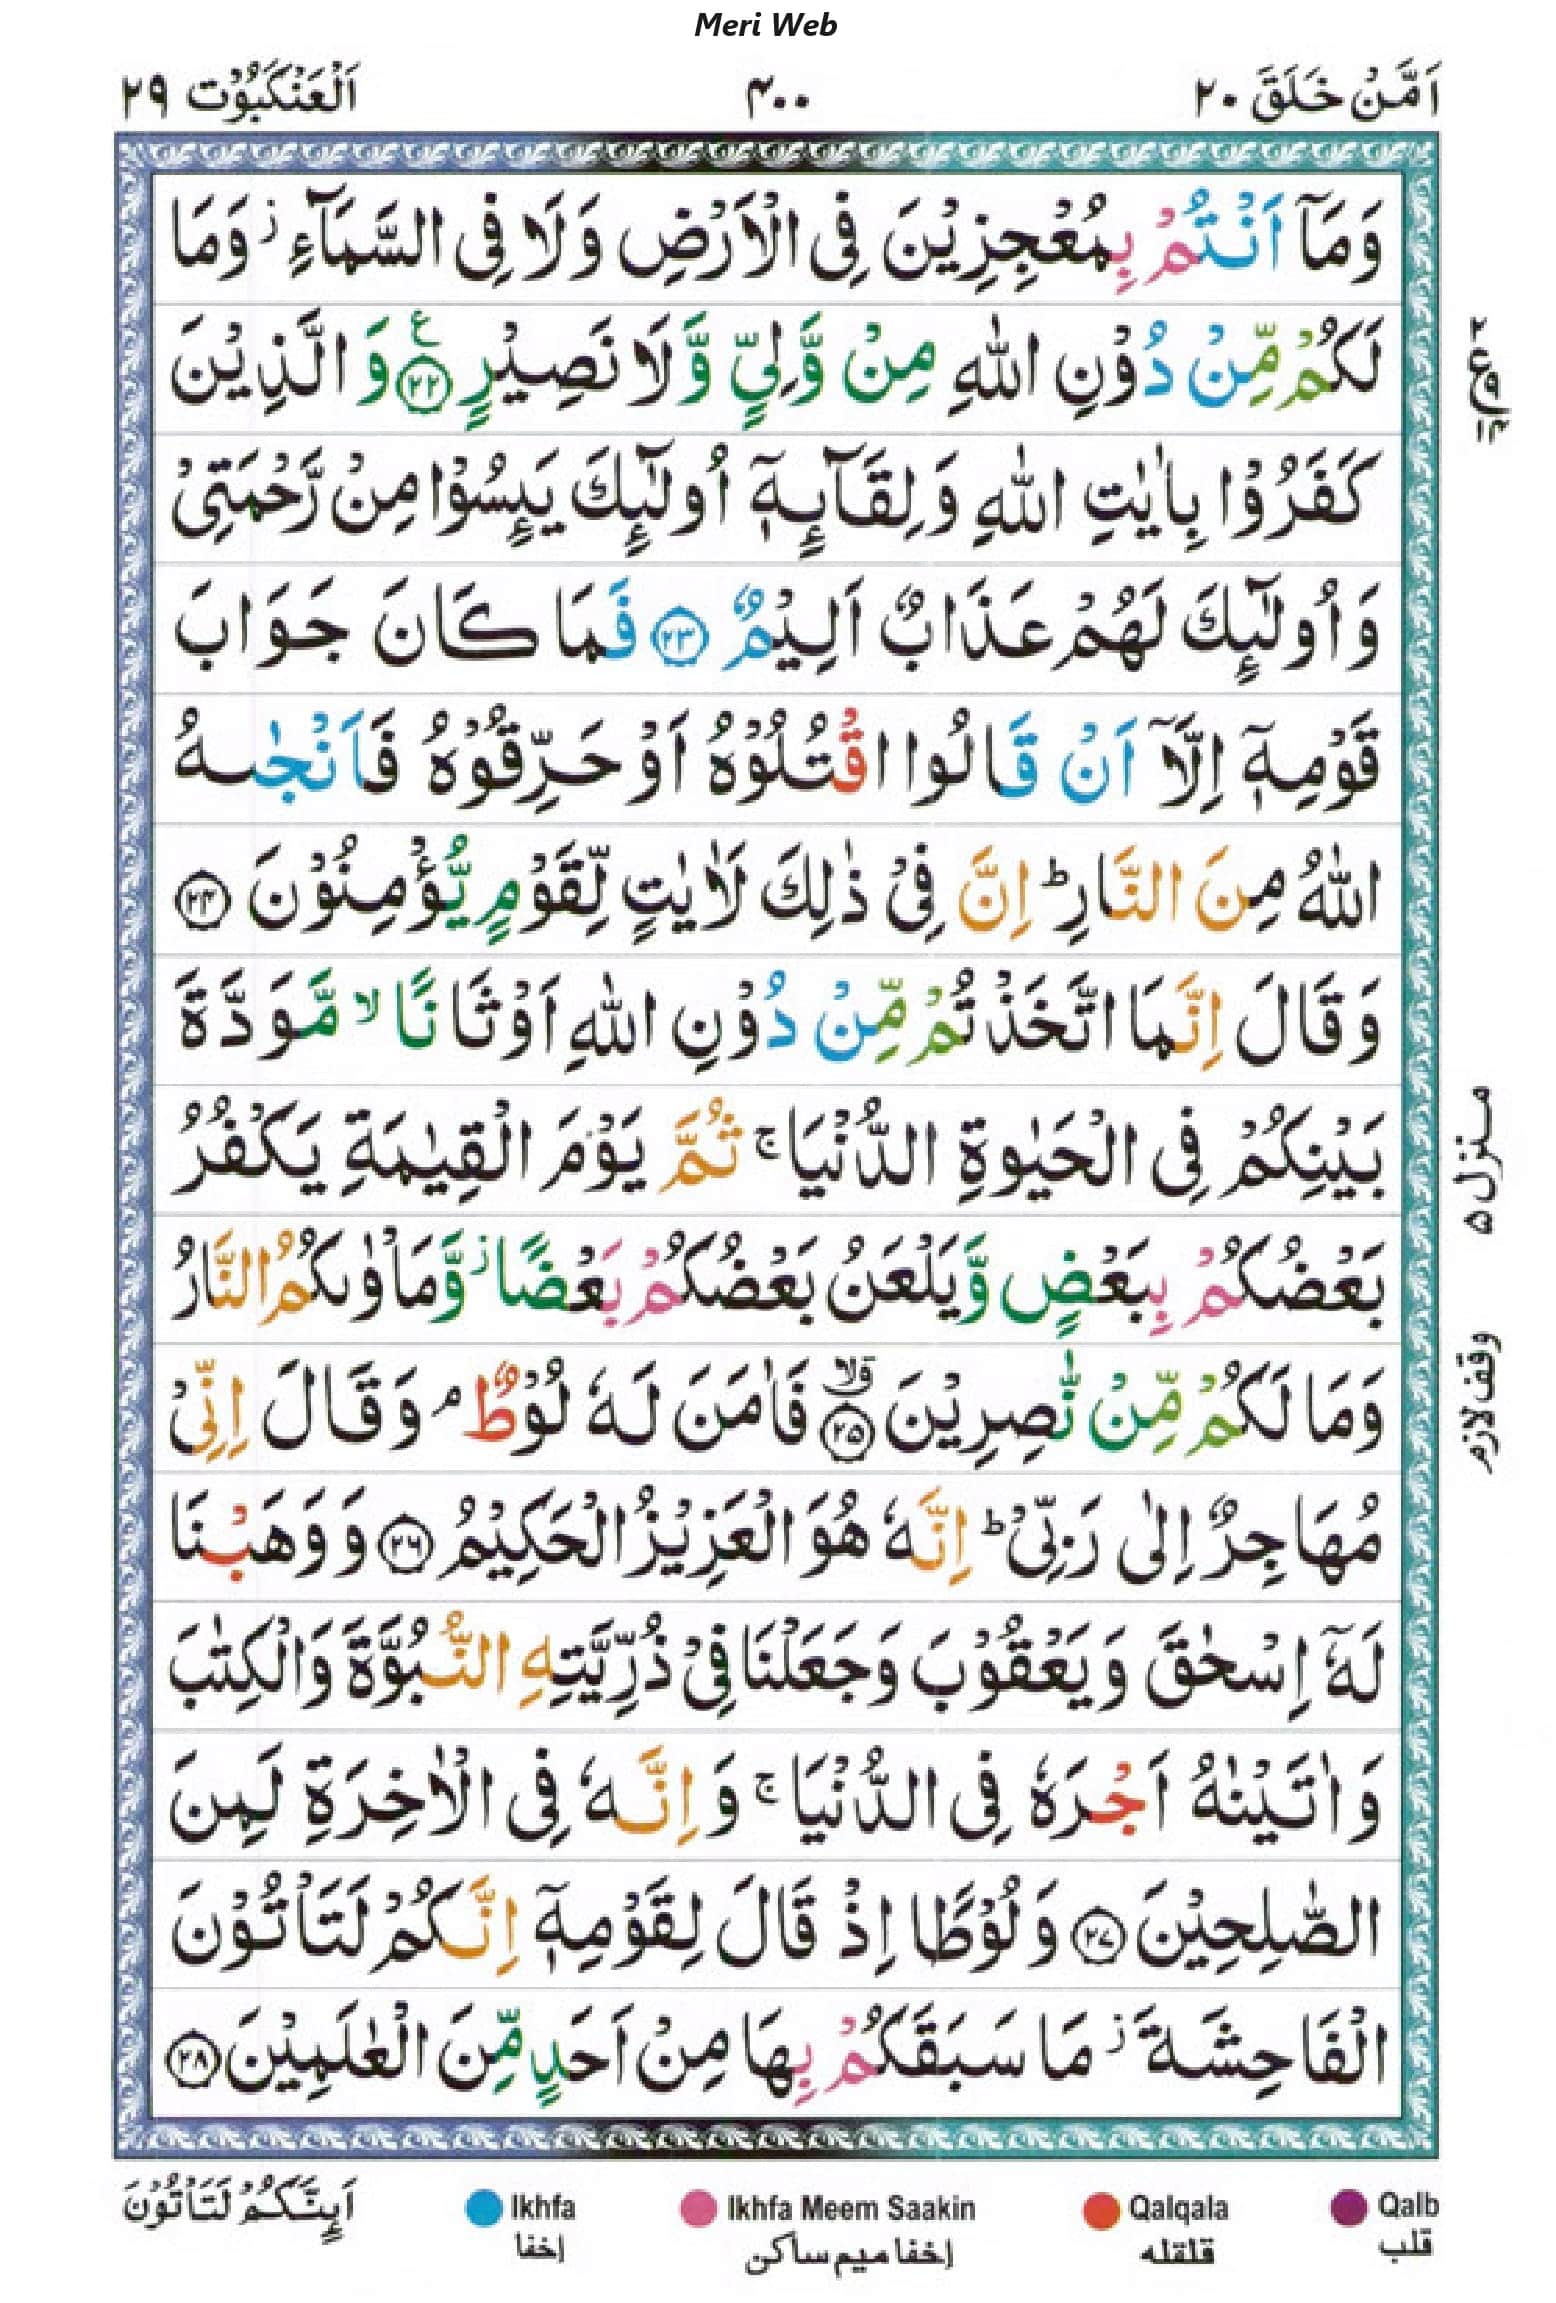 Meri Web
اَمَّنْ خَلَقَ ۲۰
۴۰۰
اَلْعَنْكَبُوْت ۲۹
وَمَآ اَنْتُمْ بِمُعْجِزِيْنَ فِى الْاَرْضِ وَلَا فِى السَّمَآءِ ز وَمَا
لَكُمْ مِّنْ دُوْنِ اللّٰهِ مِنْ وَّلِيٍّ وَّلَا نَصِيْرٍ ع ۲۲ وَالَّذِيْنَ
كَفَرُوْا بِاٰيٰتِ اللّٰهِ وَلِقَآىِٕهٖٓ اُولٰٓىِٕكَ يَىِٕسُوْا مِنْ رَّحْمَتِيْ
وَاُولٰٓىِٕكَ لَهُمْ عَذَابٌ اَلِيْمٌ ۲۳ فَمَا كَانَ جَوَابَ
قَوْمِهٖٓ اِلَّآ اَنْ قَالُوا اقْتُلُوْهُ اَوْ حَرِّقُوْهُ فَاَنْجٰىهُ
اللّٰهُ مِنَ النَّارِ ط اِنَّ فِيْ ذٰلِكَ لَاٰيٰتٍ لِّقَوْمٍ يُّؤْمِنُوْنَ ۲۴
وَقَالَ اِنَّمَا اتَّخَذْتُمْ مِّنْ دُوْنِ اللّٰهِ اَوْثَانًا لا مَّوَدَّةَ
بَيْنِكُمْ فِى الْحَيٰوةِ الدُّنْيَا ج ثُمَّ يَوْمَ الْقِيٰمَةِ يَكْفُرُ
بَعْضُكُمْ بِبَعْضٍ وَّيَلْعَنُ بَعْضُكُمْ بَعْضًا ز وَّمَاْوٰىكُمُ النَّارُ
وَمَا لَكُمْ مِّنْ نّٰصِرِيْنَ ۲۵ قلا فَاٰمَنَ لَهٗ لُوْطٌ م وَقَالَ اِنِّيْ
مُهَاجِرٌ اِلٰى رَبِّيْ ط اِنَّهٗ هُوَ الْعَزِيْزُ الْحَكِيْمُ ۲۶ وَوَهَبْنَا
لَهٗٓ اِسْحٰقَ وَيَعْقُوْبَ وَجَعَلْنَا فِيْ ذُرِّيَّتِهِ النُّبُوَّةَ وَالْكِتٰبَ
وَاٰتَيْنٰهُ اَجْرَهٗ فِى الدُّنْيَا ج وَاِنَّهٗ فِى الْاٰخِرَةِ لَمِنَ
الصّٰلِحِيْنَ ۲۷ وَلُوْطًا اِذْ قَالَ لِقَوْمِهٖٓ اِنَّكُمْ لَتَاْتُوْنَ
الْفَاحِشَةَ ز مَا سَبَقَكُمْ بِهَا مِنْ اَحَدٍ مِّنَ الْعٰلَمِيْنَ ۲۸
منزل ۵
وقف لازم
اَىِٕنَّكُمْ لَتَاْتُوْنَ
Ikhfa
إخفا
Ikhfa Meem Saakin
إخفا ميم ساكن
Qalqala
قلقله
Qalb
قلب